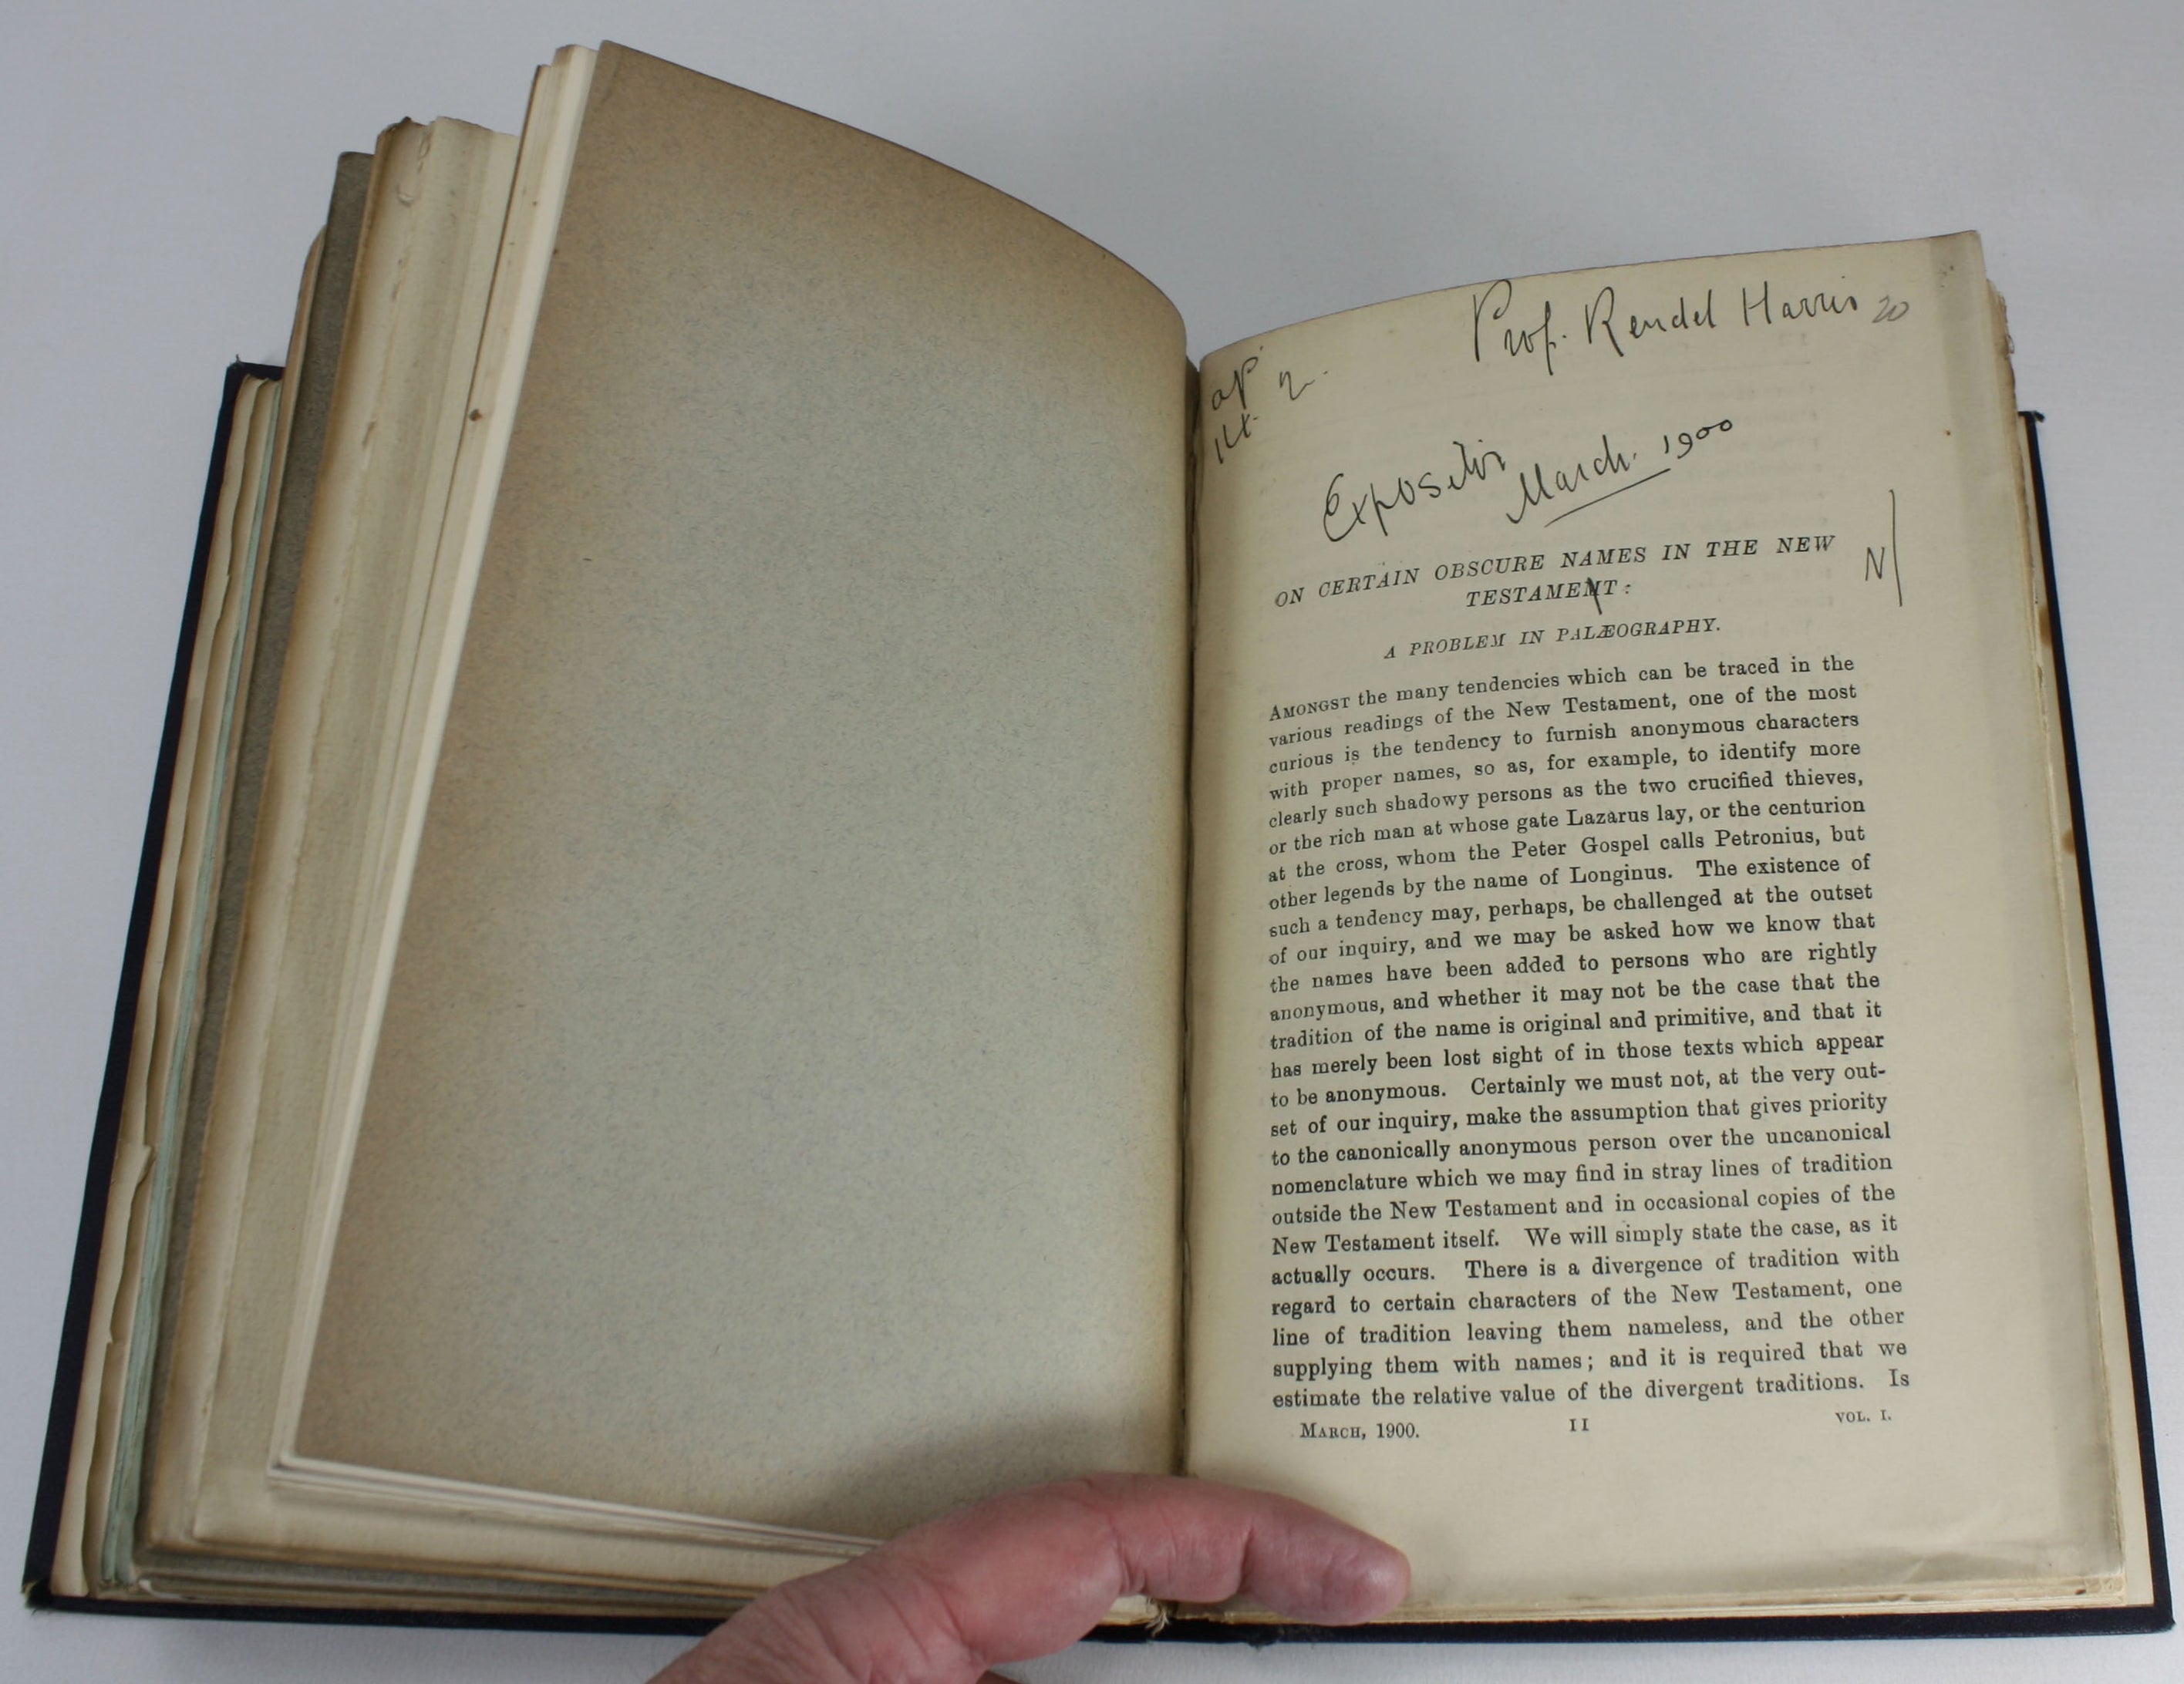 Prof. Rendel Harris 20
2.
Expositor
March. 1900
ON CERTAIN OBSCURE NAMES IN THE NEW
TESTAMENT: N/
A PROBLEM IN PALÆOGRAPHY.
AMONGST the many tendencies which can be traced in the
various readings of the New Testament, one of the most
curious is the tendency to furnish anonymous characters
with proper names, so as, for example, to identify more
clearly such shadowy persons as the two crucified thieves,
or the rich man at whose gate Lazarus lay, or the centurion
at the cross, whom the Peter Gospel calls Petronius, but
other legends by the name of Longinus. The existence of
such a tendency may, perhaps, be challenged at the outset
of our inquiry, and we may be asked how we know that
the names have been added to persons who are rightly
anonymous, and whether it may not be the case that the
tradition of the name is original and primitive, and that it
has merely been lost sight of in those texts which appear
to be anonymous. Certainly we must not, at the very out-
set of our inquiry, make the assumption that gives priority
to the canonically anonymous person over the uncanonical
nomenclature which we may find in stray lines of tradition
outside the New Testament and in occasional copies of the
New Testament itself. We will simply state the case, as it
actually occurs. There is a divergence of tradition with
regard to certain characters of the New Testament, one
line of tradition leaving them nameless, and the other
supplying them with names; and it is required that we
estimate the relative value of the divergent traditions. Is
MARCH, 1900. 11 VOL. I.